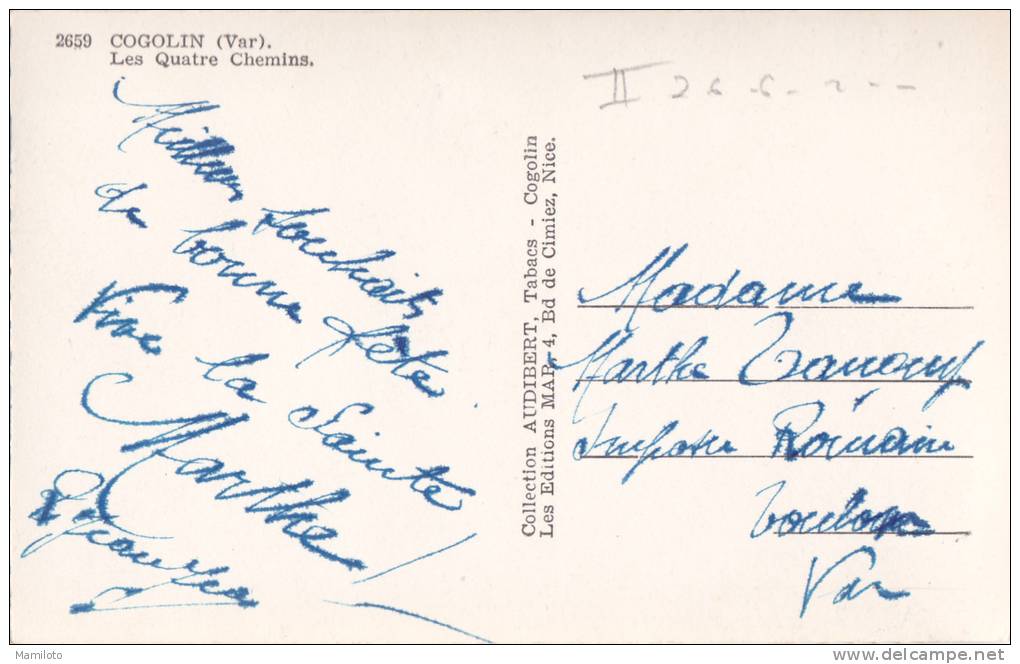 2659 COGOLIN (Var).
Les Quatre Chemins.
Meilleurs souhaits
de bonne fête
Vive la Sainte
Marthe !
Collection AUDIBERT, Tabacs - Cogolin
Les Editions MAR, 4, Bd de Cimiez, Nice.
II 26-6-2--
Madame
Marthe
Impasse Romain
Toulon
Var
Mamiloto
delcampe.net